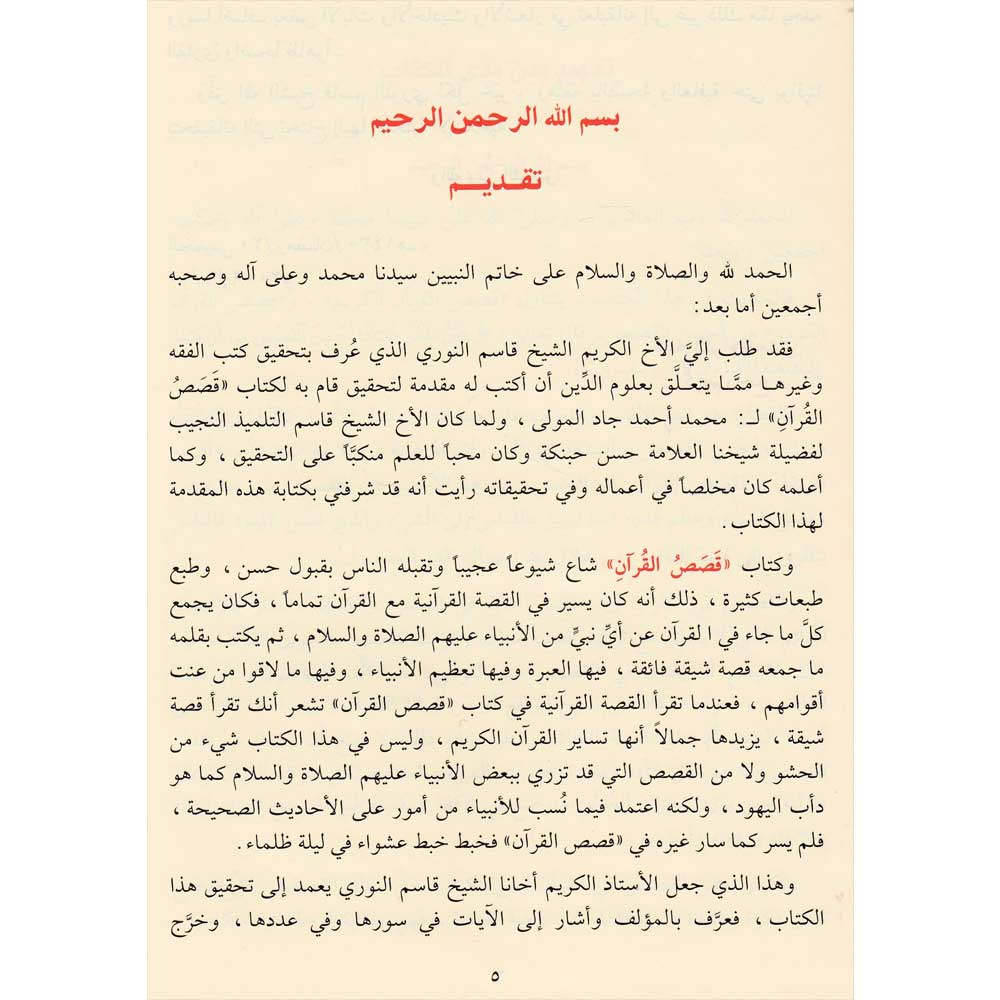 بسم الله الرحمن الرحيم
تقـديـم
الحمد لله والصلاة والسلام على خاتم النبيين سيدنا محمد وعلى آله وصحبه
أجمعين أما بعد :
فقد طلب إليَّ الأخ الكريم الشيخ قاسم النوري الذي عُرف بتحقيق كتب الفقه
وغيرهـا ممَّـا يتعـلَّق بعلوم الدِّين أن أكتب له مقدمة لتحقيق قام به لكتاب «قَصَصُ
القُرآنِ» لـ : محمد أحمد جاد المولى ، ولما كان الأخ الشيخ قاسم التلميذ النجيب
لفضيلة شيخنا العلامة حسن حبنكة وكان محباً للعلم منكبَّاً على التحقيق ، وكما
أعلمه كان مخلصاً في أعماله وفي تحقيقاته رأيت أنه قد شرفني بكتابة هذه المقدمة
لهذا الكتاب .
وكتاب «قَصَصُ القُرآنِ» شاع شيوعاً عجيباً وتقبله الناس بقبول حسن ، وطبع
طبعات كثيرة ، ذلك أنه كان يسير في القصة القرآنية مع القرآن تماماً ، فكان يجمع
كلَّ ما جاء في ا لقرآن عن أيِّ نبيٍّ من الأنبياء عليهم الصلاة والسلام ، ثم يكتب بقلمه
ما جمعه قصة شيقة فائقة ، فيها العبرة وفيها تعظيم الأنبياء ، وفيها ما لاقوا من عنت
أقوامهم ، فعندما تقرأ القصة القرآنية في كتاب «قصص القرآن» تشعر أنك تقرأ قصة
شيقة ، يزيدها جمالاً أنها تساير القرآن الكريم ، وليس في هذا الكتاب شيء من
الحشو ولا من القصص التي قد تزري ببعض الأنبياء عليهم الصلاة والسلام كما هو
دأب اليهود ، ولكنه اعتمد فيما نُسب للأنبياء من أمور على الأحاديث الصحيحة ،
فلم يسر كما سار غيره في «قصص القرآن» فخبط خبط عشواء في ليلة ظلماء .
وهذا الذي جعل الأستاذ الكريم أخانا الشيخ قاسم النوري يعمد إلى تحقيق هذا
الكتاب ، فعرَّف بالمؤلف وأشار إلى الآيات في سورها وفي عددها ، وخرَّج
٥